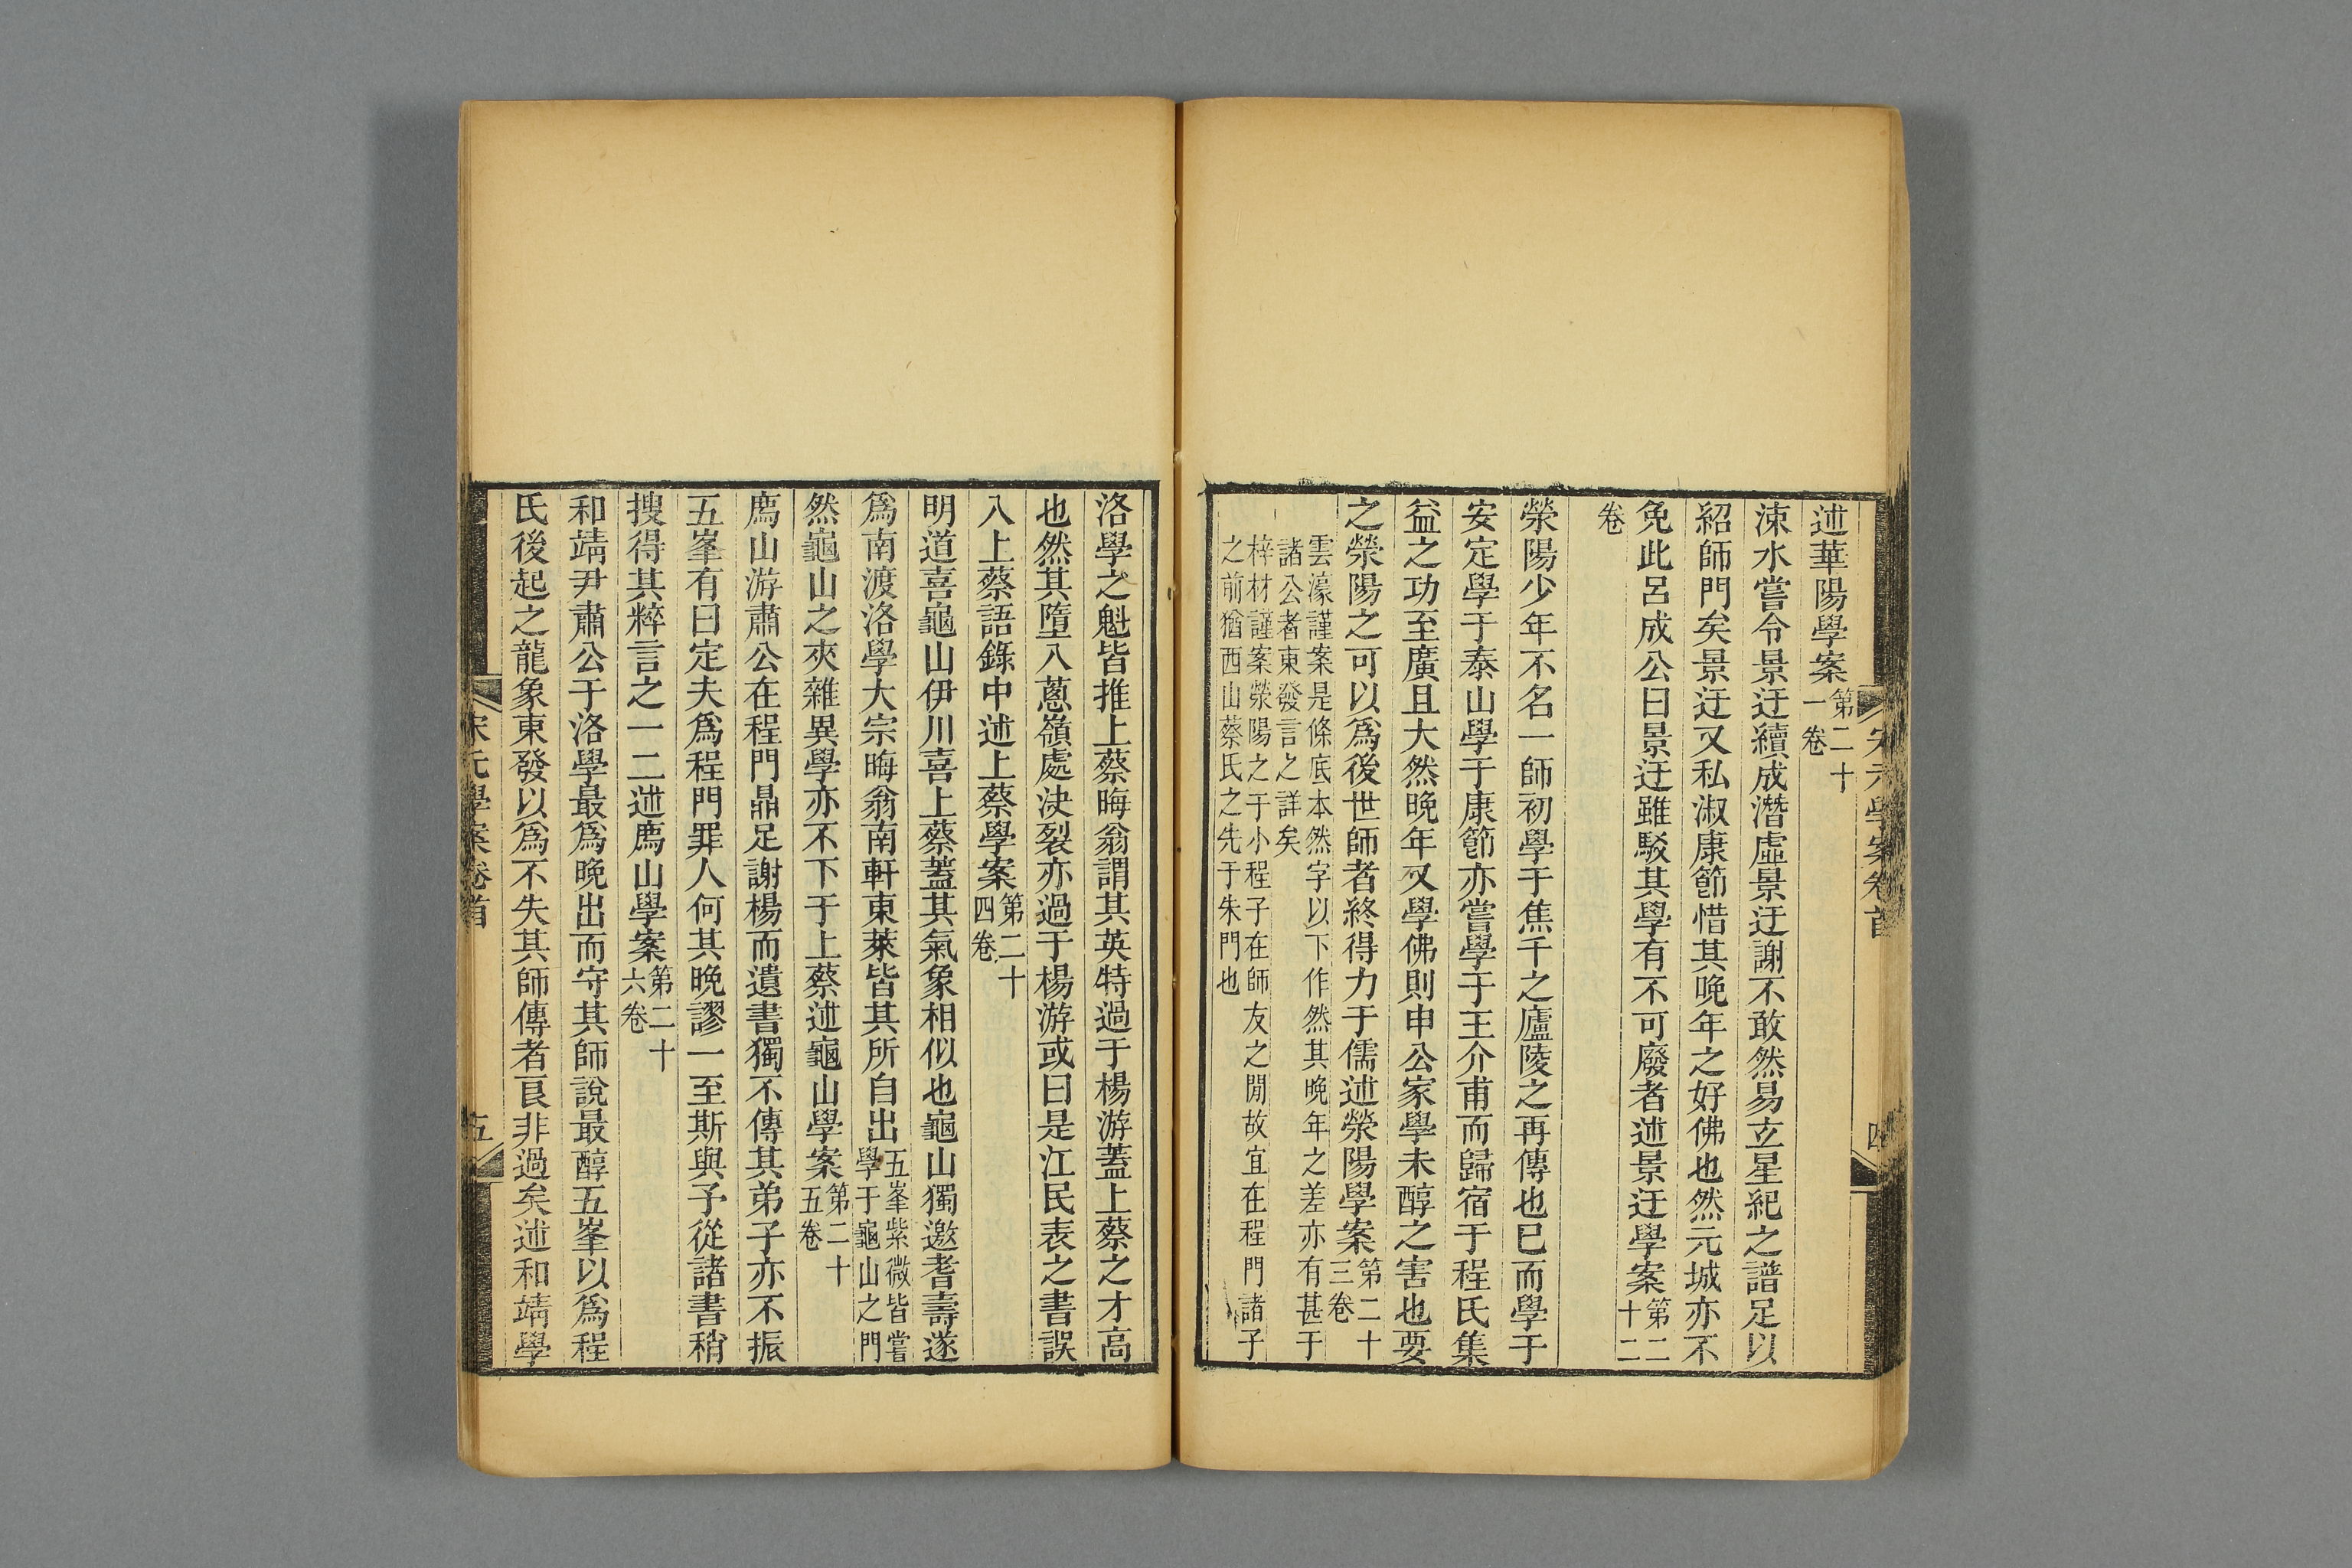 宋元學案卷首
四
述華陽學案第二十一卷
涑水嘗令景迂續成潛虛景迂謝不敢然易玄星紀之譜足以
紹師門矣景迂又私淑康節惜其晚年之好佛也然元城亦不
免此呂成公曰景迂雖駁其學有不可廢者述景迂學案第二十二
卷
滎陽少年不名一師初學于焦千之廬陵之再傳也巳而學于
安定學于泰山學于康節亦嘗學于王介甫而歸宿于程氏集
益之功至廣且大然晚年又學佛則申公家學未醇之害也要
之滎陽之可以爲後世師者終得力于儒述滎陽學案第二十三卷
雲濠謹案是條底本然字以下作然其晚年之差亦有甚于
諸公者東發言之詳矣
梓材謹案滎陽之于小程子在師友之閒故宜在程門諸子
之前猶西山蔡氏之先于朱門也
洛學之魁皆推上蔡晦翁謂其英特過于楊游蓋上蔡之才高
也然其墮入蔥嶺處決裂亦過于楊游或曰是江民表之書誤
入上蔡語錄中述上蔡學案第二十四卷
明道喜龜山伊川喜上蔡蓋其氣象相似也龜山獨邀耆壽遂
爲南渡洛學大宗晦翁南軒東萊皆其所自出五峯紫微皆嘗學于龜山之門
然龜山之夾雜異學亦不下于上蔡述龜山學案第二十五卷
廌山游肅公在程門鼎足謝楊而遺書獨不傳其弟子亦不振
五峯有曰定夫爲程門罪人何其晚謬一至斯與予從諸書稍
搜得其粹言之一二述廌山學案第二十六卷
和靖尹肅公于洛學最爲晚出而守其師說最醇五峯以爲程
氏後起之龍象東發以爲不失其師傳者良非過矣述和靖學
宋元學案卷首
五